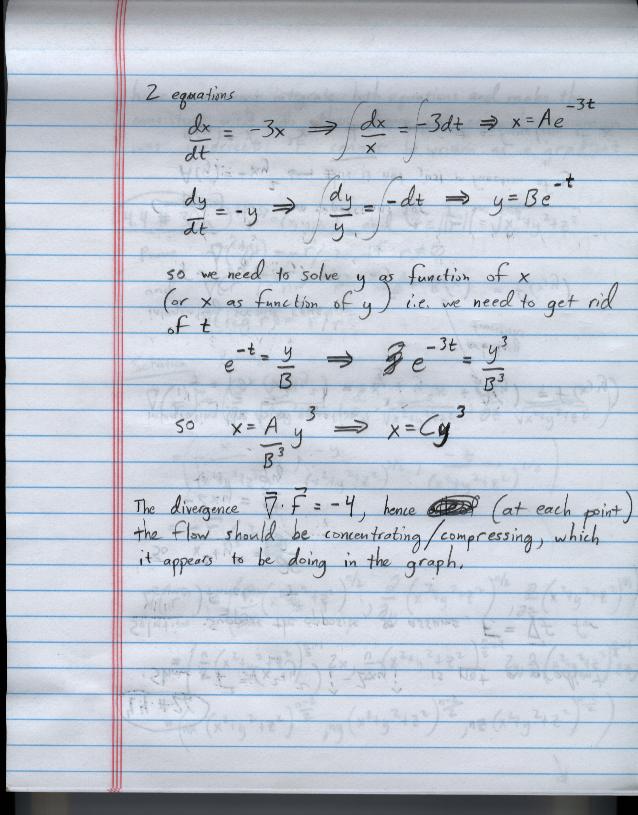 2 equations
dx/dt = -3x ⇒ ∫ dx/x = ∫ -3dt ⇒ x = Ae^-3t
dy/dt = -y ⇒ ∫ dy/y = ∫ -dt ⇒ y = Be^-t
so we need to solve y as function of x
(or x as function of y) i.e. we need to get rid
of t
e^-t = y/B ⇒ e^-3t = y^3/B^3
so x = A/B^3 y^3 ⇒ x = Cy^3
The divergence ∇⃗ · F⃗ = -4, hence (at each point)
the flow should be concentrating/compressing, which
it appears to be doing in the graph.